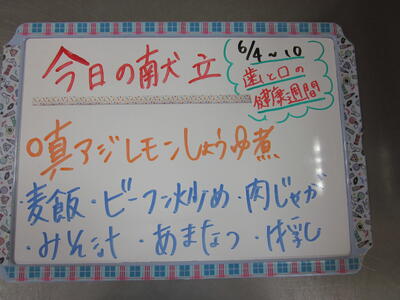 今日の献立
6/4~10
歯と口の
健康週間
○真アジレモンしょうゆ煮
・麦飯・ビーフン炒め・肉じゃが
・みそ汁・あまなつ・牛乳